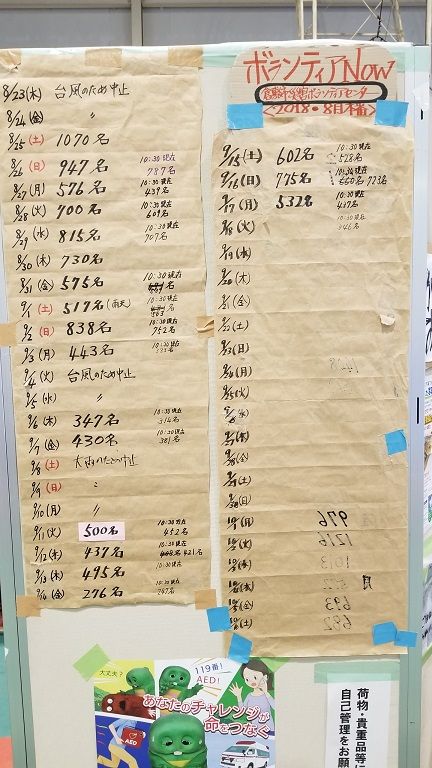 8/23(木) 台風のため中止
8/24(金) 〃
8/25(土) 1070名
8/26(日) 947名 10:30現在 787名
8/27(月) 576名 10:30現在 439名
8/28(火) 700名 10:30現在 609名
8/29(水) 815名 10:30現在 707名
8/30(木) 730名
8/31(金) 575名 10:30現在
9/1(土) 517名(雨天) 10:30現在
9/2(日) 838名 10:30現在 752名
9/3(月) 443名 10:30現在
9/4(火) 台風のため中止
9/5(水) 〃
9/6(木) 347名 10:30現在 314名
9/7(金) 430名 10:30現在 381名
9/8(土) 大雨のため中止
9/9(日) 〃
9/10(月) 〃
9/11(火) 500名 10:30現在 452名
9/12(水) 437名 10:30現在 421名
9/13(木) 495名 10:30現在
9/14(金) 276名 10:30現在
ボランティアNow
倉敷市災害ボランティアセンター
<2018・8月下旬>
9/15(土) 602名 10:30現在 528名
9/16(日) 775名 10:30現在 723名
9/17(月) 532名 10:30現在 437名
9/18(火) 10:30現在 346名
9/19(水)
9/20(木)
9/21(金)
9/22(土)
9/23(日)
9/24(月)
9/25(火)
9/26(水)
9/27(木)
9/28(金)
9/29(土)
9/30(日)
10/1(月) 976
10/2(火) 1216
10/3(水) 1013
10/4(木)
10/5(金) 693
10/6(土) 692
大丈夫?
119番!
AED!
あなたのチャレンジが
命をつなぐ
AED
荷物・貴重品等に
自己管理をお願